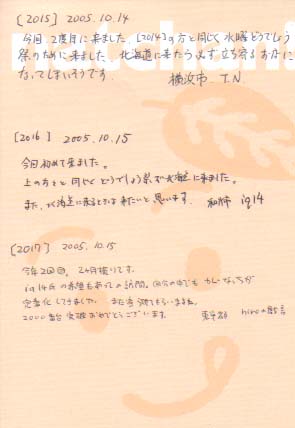 [2015] 2005.10.14
今回、2度目に来ました。[2014]の方と同じく水曜どうでしょう
祭のために来ました。北海道に来たら必ず立ち寄るお店に
なってしまいそうです。 横浜市 T.N
natchan!
[2016] 2005.10.15
今回初めて来ました。
上の方々と同じくどうでしょう祭で北海道に来ました。
また、北海道に来るときは来たいと思います。 ig14
[2017] 2005.10.15
今年2回目、2ヶ月振りです。
ig14氏の希望もあっての訪問。自分の中でも
定番化してきました。また寄らせてもらいますね。
2000番台突破おめでとうございます。 東京都 hiro